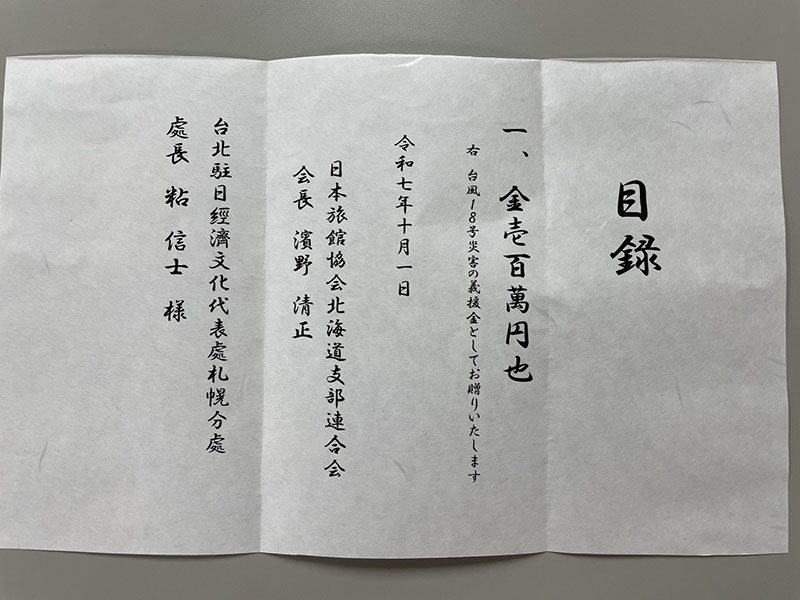 目録
一、金壱百萬円也
右 台風18号災害の義援金としてお贈りいたします
令和七年十月一日
日本旅館協会北海道支部連合会
会長 濱野 清正
台北駐日經濟文化代表處札幌分處
處長 粘 信士 様